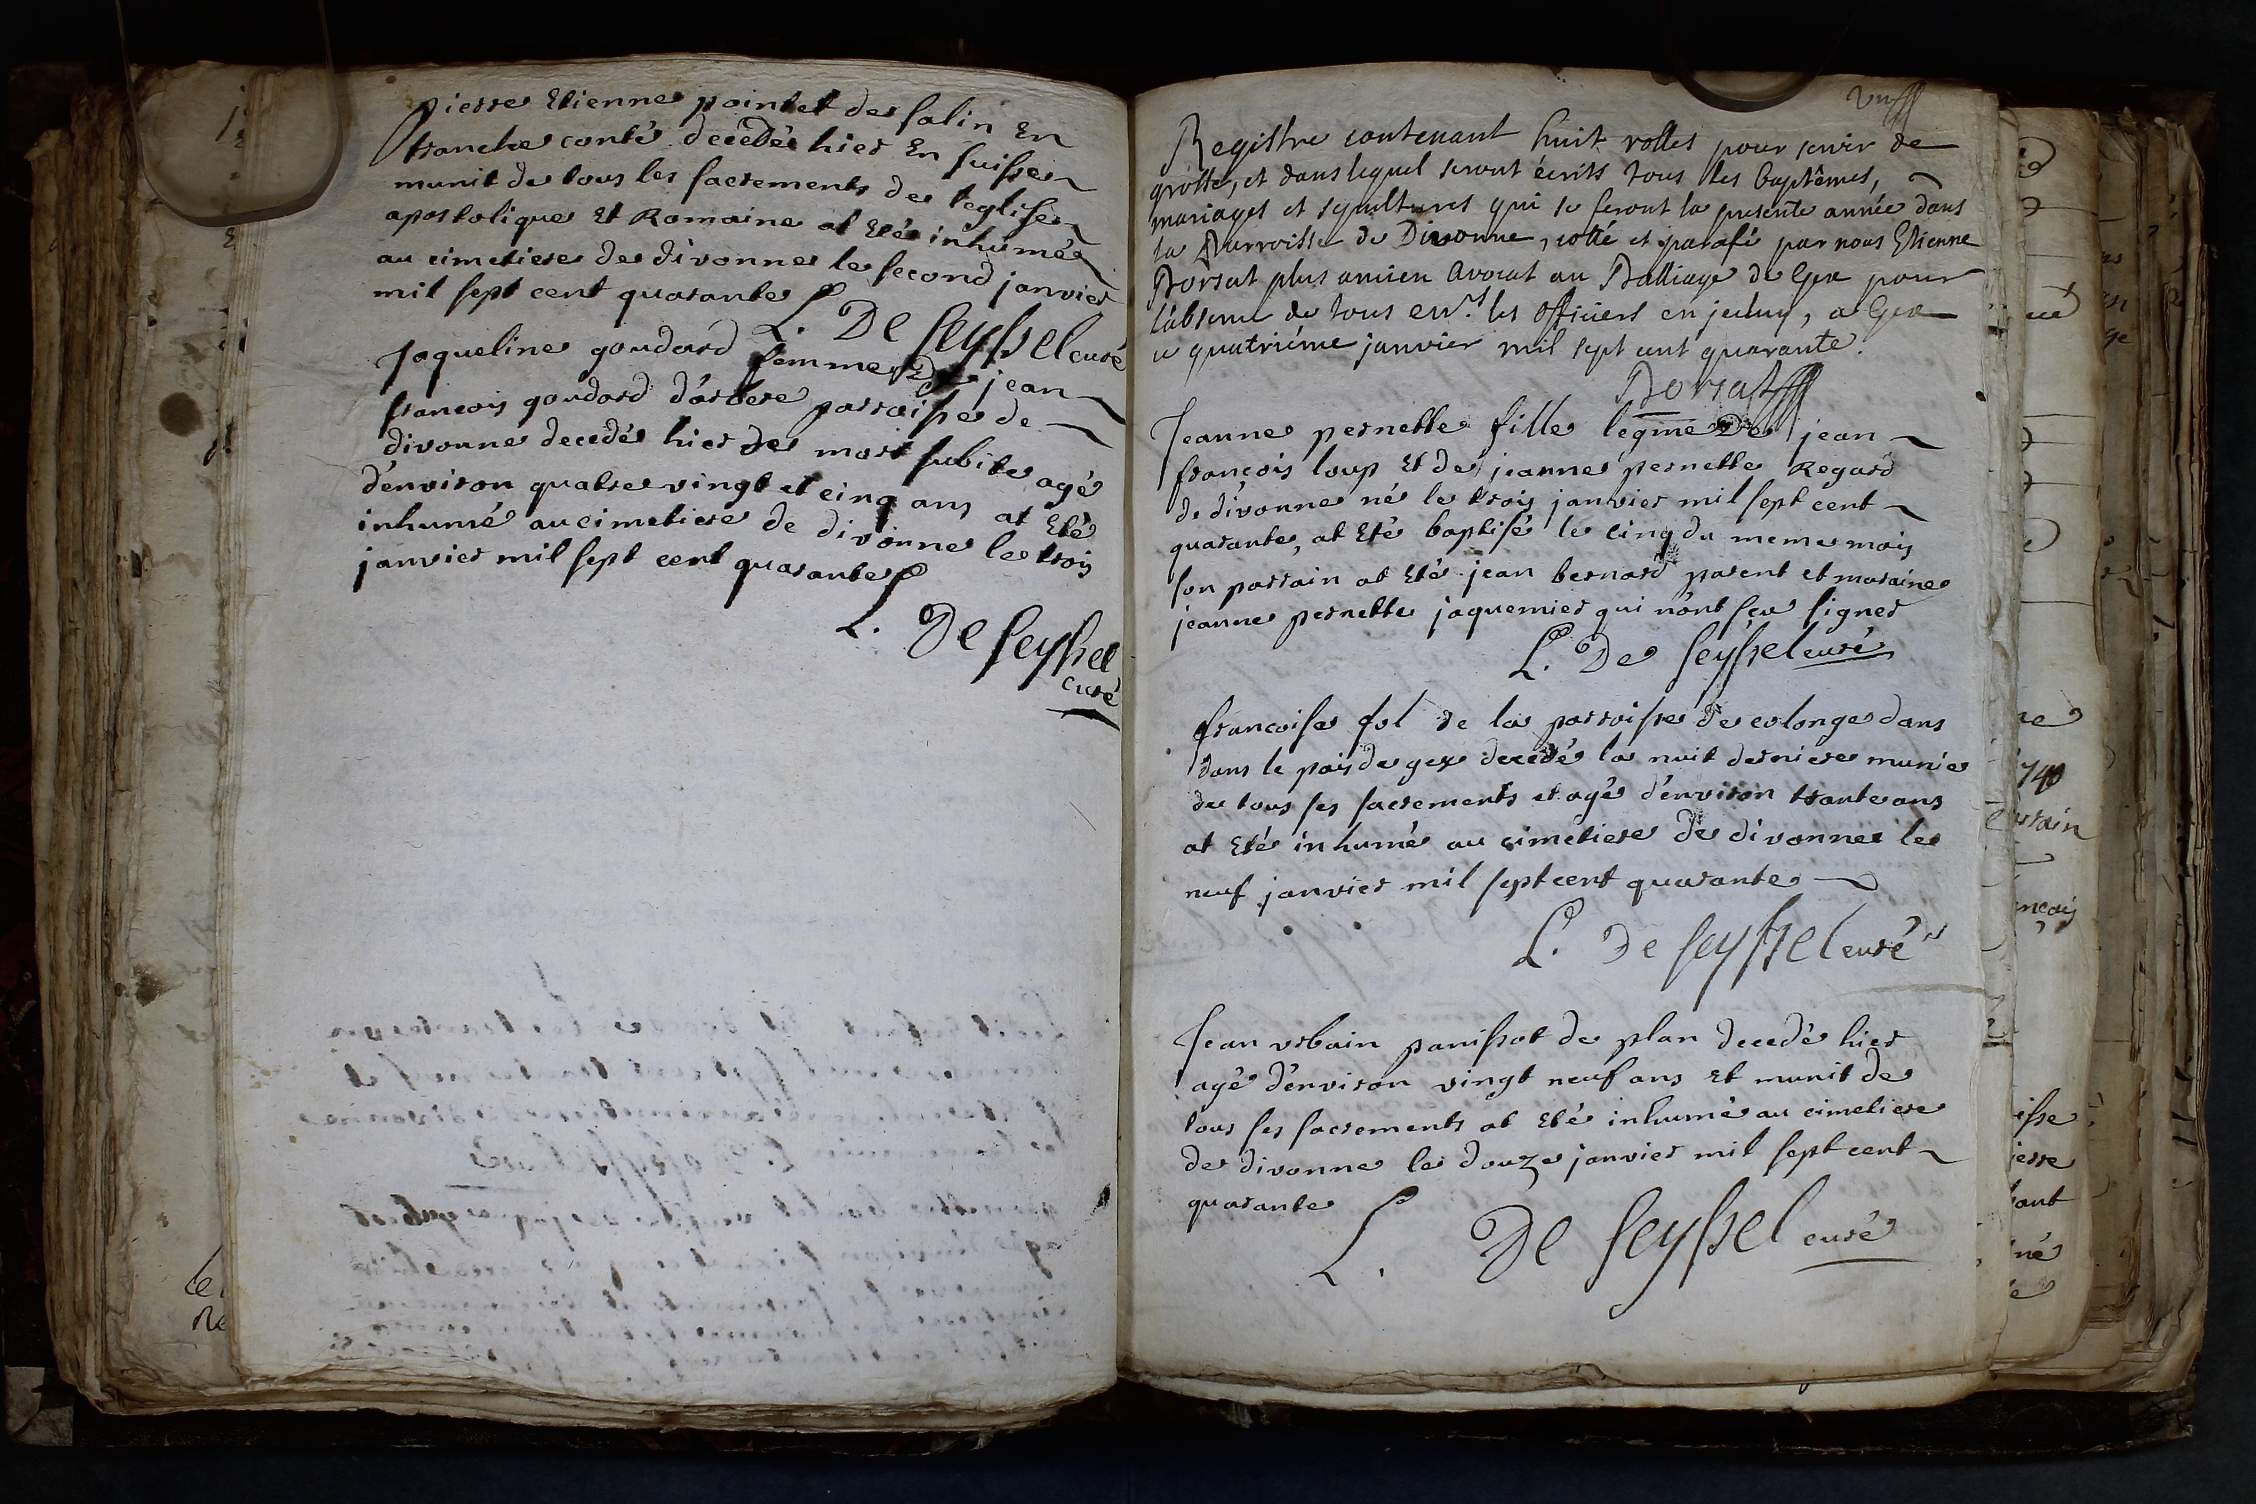 pierre Etienne pointet de salin En
franche conté decedée hier En suisse
munit de tous les sacrements de l'eglise
apostolique Et Romaine at Eté inhumé
au cimetiere de divonne le second janvier
mil sept cent quarante
L. De seyssel curé
jaqueline goudard femme de jean
francois goudard d'arbere parroisse de
divonne decedé hier de mort subite agé
d'environ quatre vingt et cinq ans at Eté
inhumé au cimetiere de divonne le trois
janvier mil sept cent quarante
L. De seyssel
curé
Registre contenant huit rolles pour servir de
grosse, et dans lequel seront écrits tous les baptêmes,
mariages et sepultures qui se feront la presente année dans
la Parroisse de Divonne, cotté et parafé par nous Etienne
Borsat plus ancien avocat au Balliage de Gex pour
l'absence de tous les officiers en , a Gex
ce quatriéme janvier mil sept cent quarante.
Borsat
Jeanne pernette fille legme de jean
françois loup Et de jeanne pernette Regard
de divonne né le trois janvier mil sept cent
quarante, at Eté baptisé le cinq du meme mois
son parrain at Eté jean bernard parent et maraine
jeanne pernette jaquemier qui n'ont sçu signer
L. De seyssel curé
francoise fol de la parroisse de colonge dans
dans le pais de gex decedé la nuit derniere munie
de tous ses sacrements et agé d'environ trante ans
at Eté inhumé au cimetiere de divonne le
neuf janvier mil sept cent quarante
L. De seyssel curé
Jean urbain panissot de plan decedé hier
agé d'environ vingt neuf ans Et munit de
tous ses sacrements at Eté inhumé au cimetiere
de divonne le douze janvier mil sept cent
quarante
L. De seyssel curé